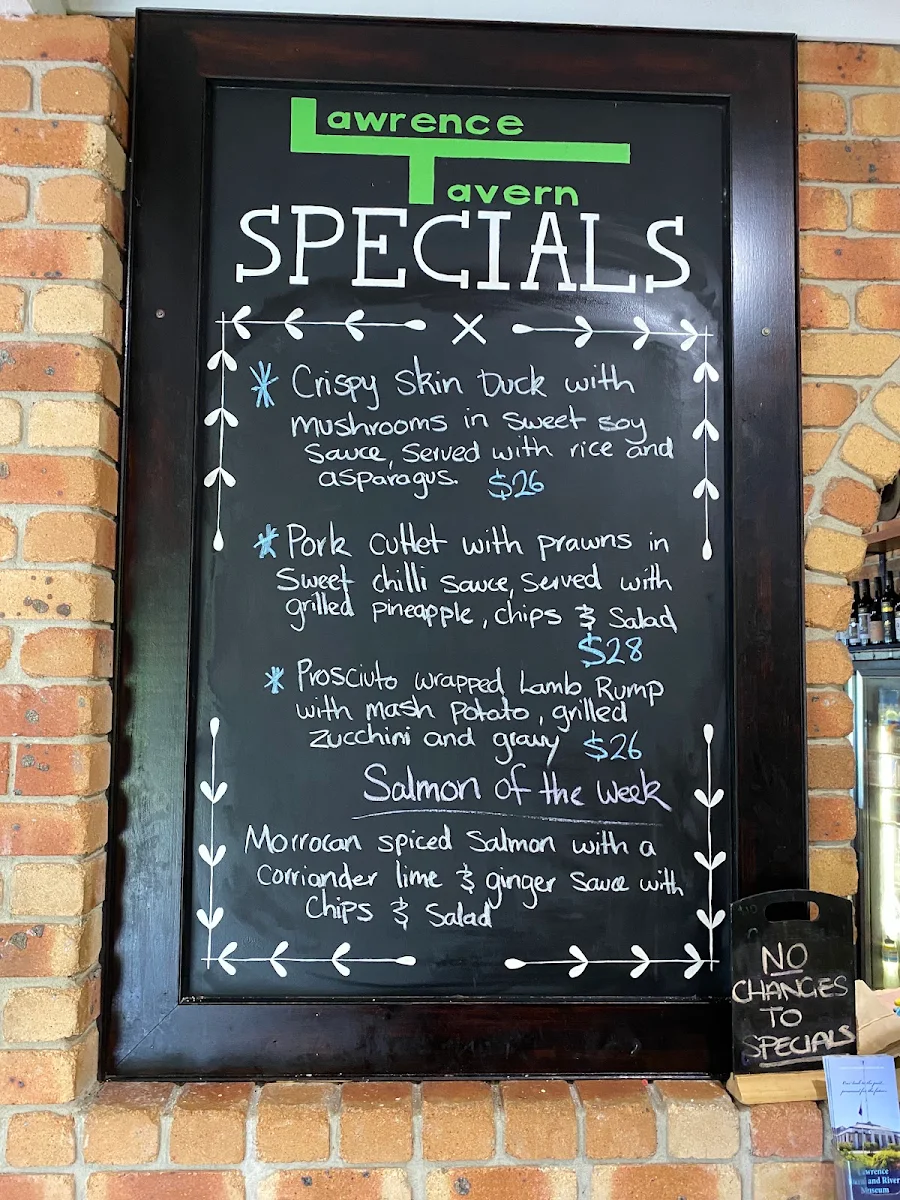 Lawrence
Tavern
SPECIALS
* Crispy Skin Duck with
mushrooms in sweet soy
sauce, served with rice and
asparagus. $26
* Pork cutlet with prawns in
sweet chilli sauce, served with
grilled pineapple, chips & Salad
$28
* Prosciuto wrapped Lamb Rump
with mash potato, grilled
zucchini and gravy $26
Salmon of the week
Morrocan spiced Salmon with a
Corriander lime & ginger sauce with
Chips & Salad
NO
CHANGES
TO
SPECIALS
Museum